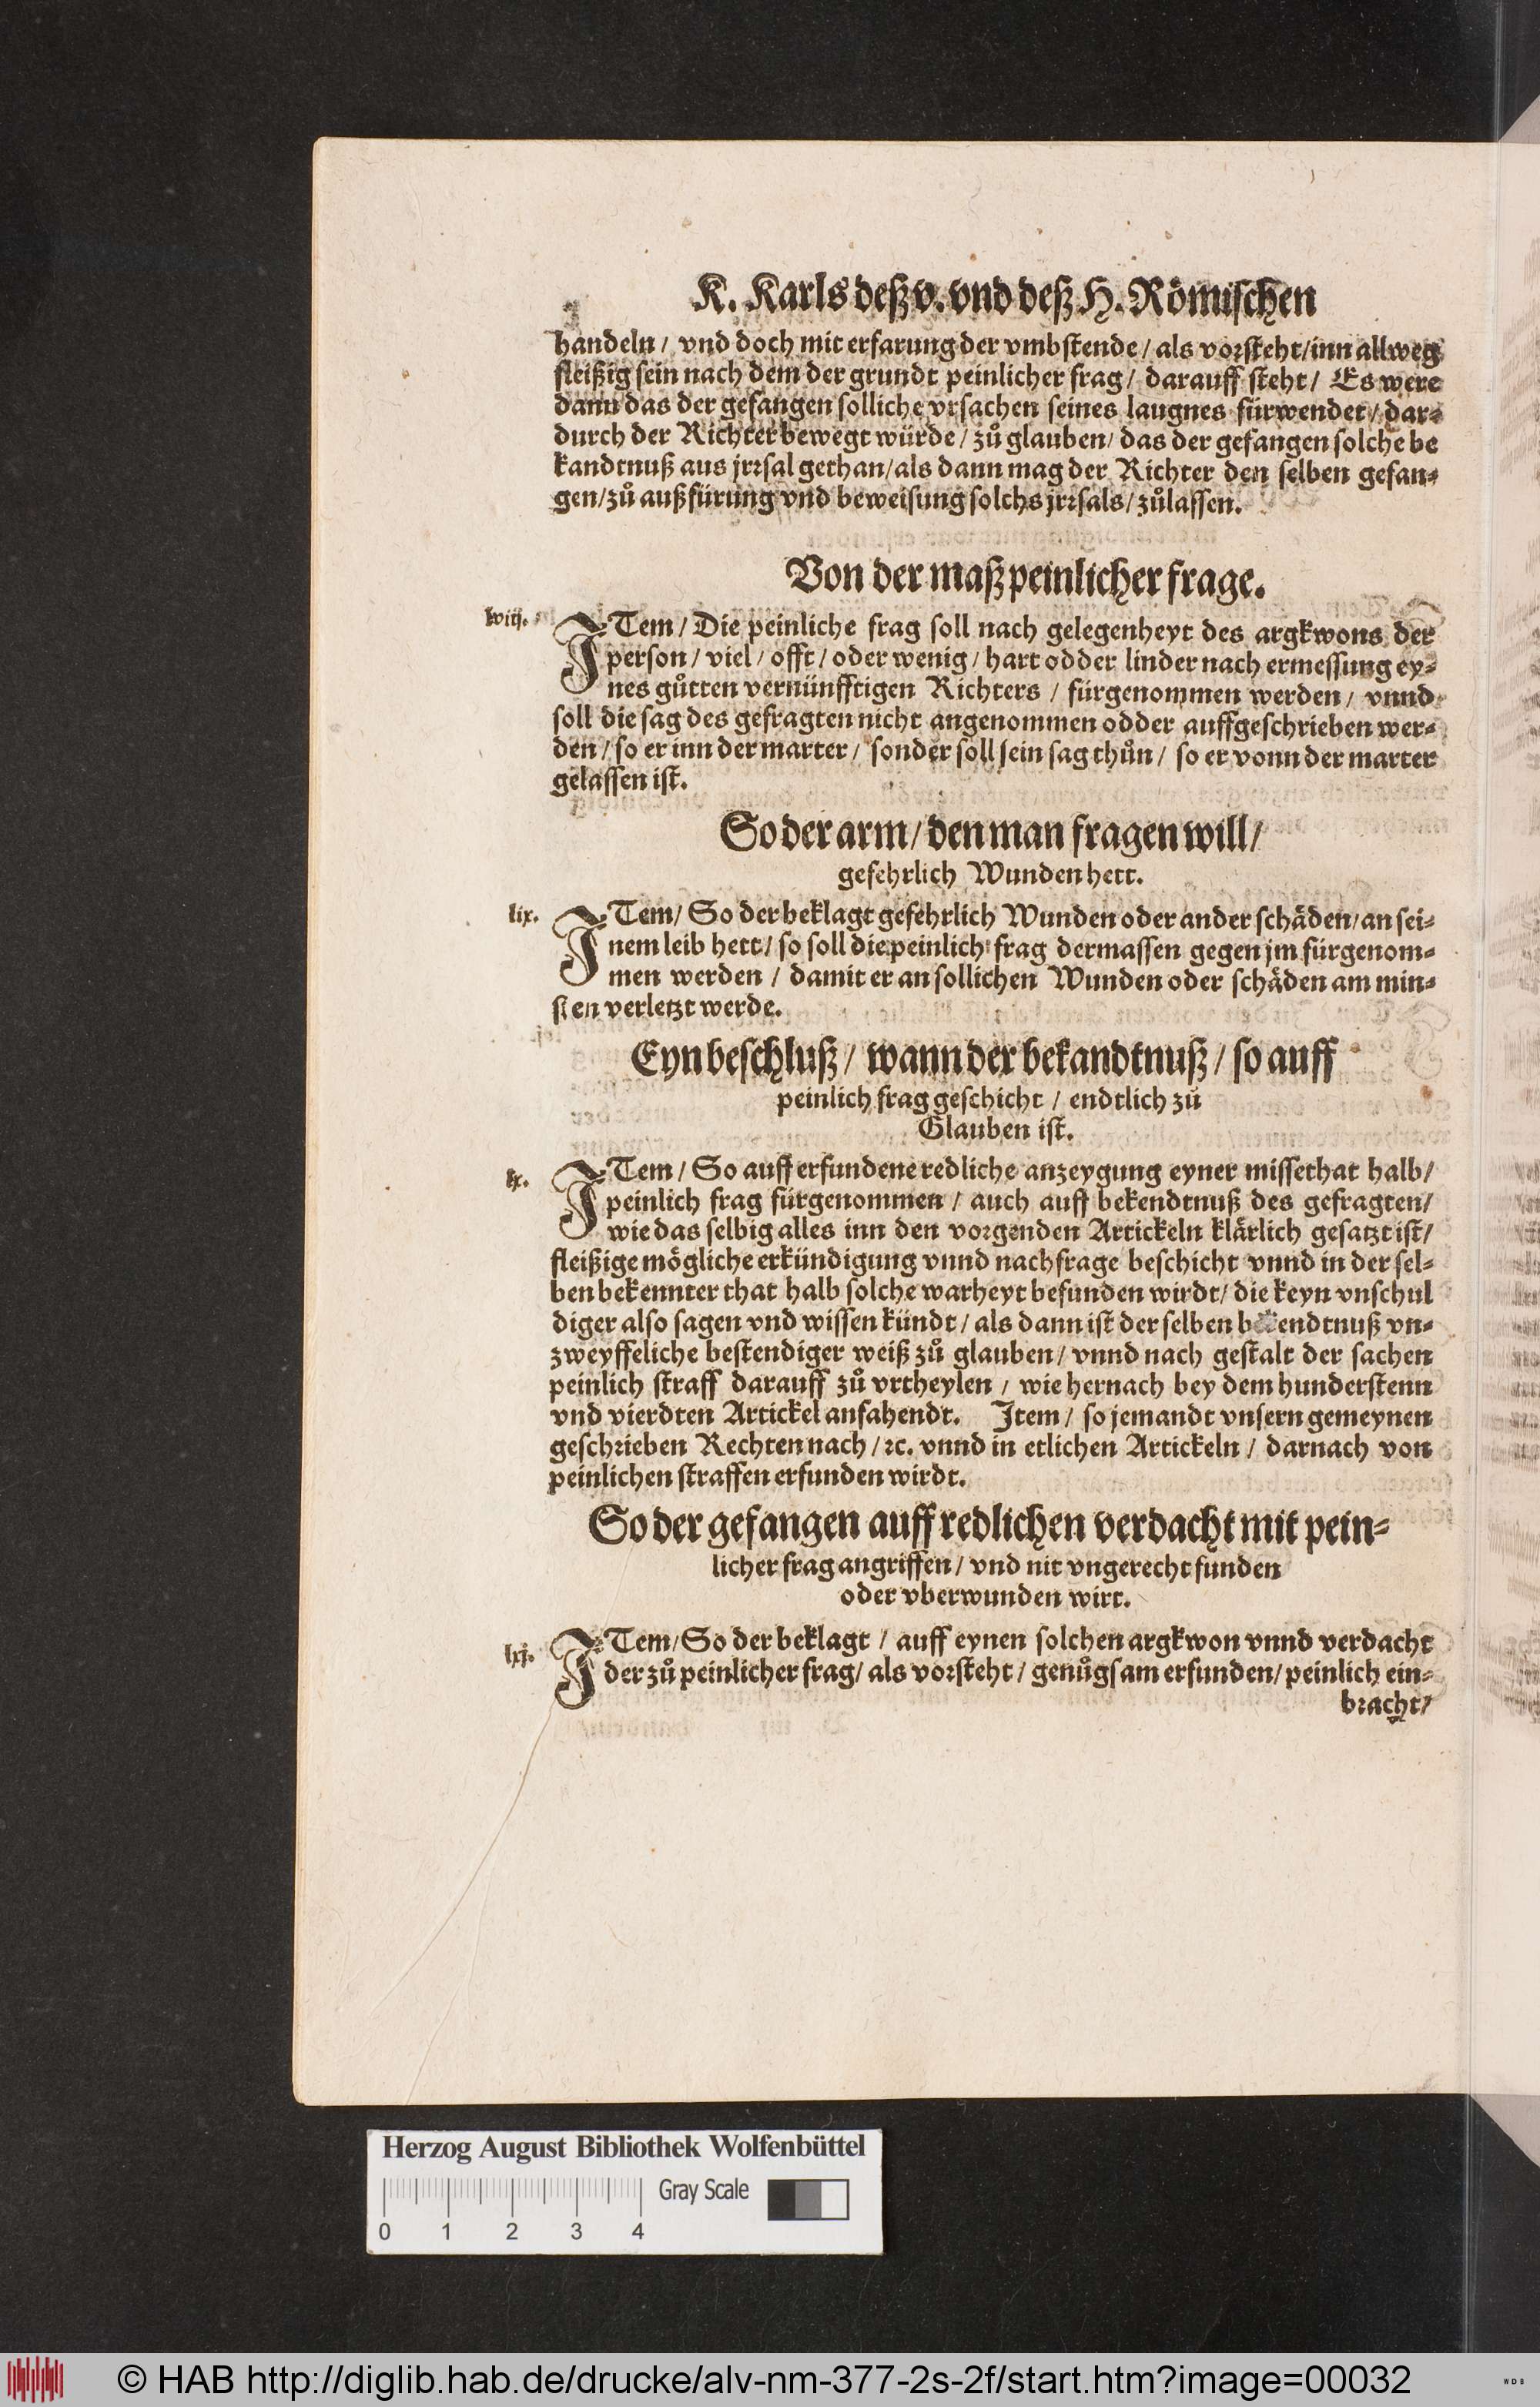 K. Karls deß v. vnd deß H. Römischen
handeln / vnd doch mit erfarung der vmbstende / als vorsteht / inn allweg
fleißig sein nach dem der grundt peinlicher frag / darauff steht / Es were
dann das der gefangen solliche vrsachen seines laugnes fürwendet / dar⸗
durch der Richter bewegt würde / zů glauben / das der gefangen solche be
kandtnuß aus jrrsal gethan / als dann mag der Richter den selben gefan⸗
gen / zů außfürung vnd beweisung solchs jrrsals / zůlassen.
Von der maß peinlicher frage.
lviij.
ITem / Die peinliche frag soll nach gelegenheyt des argkwons der
person / viel / offt / oder wenig / hart odder linder nach ermessung ey⸗
nes gůtten vernünfftigen Richters / fürgenommen werden / vnnd
soll die sag des gefragten nicht angenommen odder auffgeschrieben wer⸗
den / so er inn der marter / sonder soll sein sag thůn / so er vonn der marter
gelassen ist.
So der arm / den man fragen will /
gefehrlich Wunden hett.
lix.
ITem / So der beklagt gefehrlich Wunden oder ander schäden / an sei⸗
nem leib hett / so soll die peinlich frag dermassen gegen jm fürgenom⸗
men werden / damit er an sollichen Wunden oder schäden am min⸗
sten verletzt werde.
Eyn beschluß / wann der bekandtnuß / so auff
peinlich frag geschicht / endtlich zů
Glauben ist.
lx.
ITem / So auff erfundene redliche anzeygung eyner missethat halb /
peinlich frag fürgenommen / auch auff bekendtnuß des gefragten /
wie das selbig alles inn den vorgenden Artickeln klärlich gesatzt ist /
fleißige mögliche erkündigung vnnd nachfrage beschicht vnnd in der sel⸗
ben bekennter that halb solche warheyt befunden wirdt / die keyn vnschul
diger also sagen vnd wissen kündt / als dann ist der selben bekendtnuß vn⸗
zweyffeliche bestendiger weiß zů glauben / vnnd nach gestalt der sachen
peinlich straff darauff zů vrtheylen / wie hernach bey dem hunderstenn
vnd vierdten Artickel anfahendt. Item / so jemandt vnsern gemeynen
geschrieben Rechten nach / ꝛc. vnnd in etlichen Artickeln / darnach von
peinlichen straffen erfunden wirdt.
So der gefangen auff redlichen verdacht mit pein⸗
licher frag angriffen / vnd nit vngerecht funden
oder vberwunden wirt.
lxj.
ITem / So der beklagt / auff eynen solchen argkwon vnnd verdacht
der zů peinlicher frag / als vorsteht / genůgsam erfunden / peinlich ein⸗
bracht /
Herzog August Bibliothek Wolfenbüttel
Gray Scale
0 1 2 3 4
© HAB http://diglib.hab.de/drucke/alv-nm-377-2s-2f/start.htm?image=00032
WDB